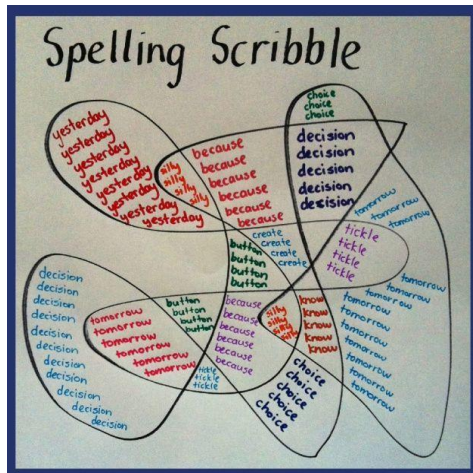 Spelling Scribble
yesterday
yesterday
yesterday
yesterday
yesterday
yesterday
yesterday
yesterday
silly
silly
silly
silly
because
because
because
because
because
because
choice
choice
choice
decision
decision
decision
decision
decision
tomorrow
tomorrow
tomorrow
tickle
tickle
tickle
tickle
create
create
create
create
button
button
button
button
decision
decision
decision
decision
decision
decision
decision
decision
decision
decision
decision
tomorrow
tomorrow
tomorrow
tomorrow
tomorrow
button
button
button
button
tickle
tickle
tickle
because
because
because
because
because
because
silly
silly
silly
silly
know
know
know
know
know
choice
choice
choice
choice
choice
tomorrow
tomorrow
tomorrow
tomorrow
tomorrow
tomorrow
tomorrow
tomorrow
tomorrow
tomorrow